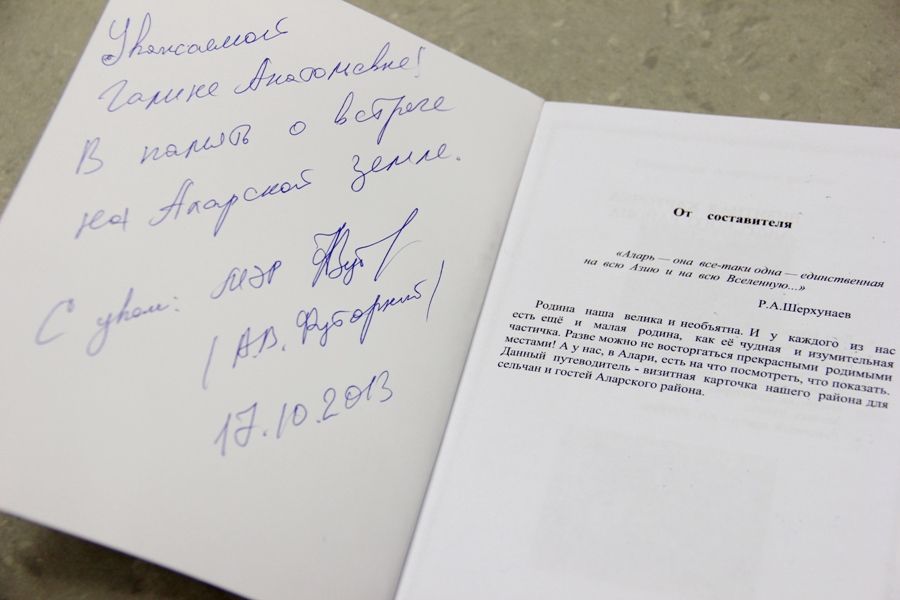 Уважаемой
Галине Анатольевне!
В память о встрече
на Аларской земле.
С уваж: мэр
/ А.В. Футорный /
17.10.2013
От составителя
«Аларь — она все-таки одна — единственная
на всю Азию и на всю Вселенную...»
Р.А.Шерхунаев
Родина наша велика и необъятна. И у каждого из нас
есть ещё и малая родина, как её чудная и изумительная
частичка. Разве можно не восторгаться прекрасными родимыми
местами! А у нас, в Алари, есть на что посмотреть, что показать.
Данный путеводитель - визитная карточка нашего района для
сельчан и гостей Аларского района.